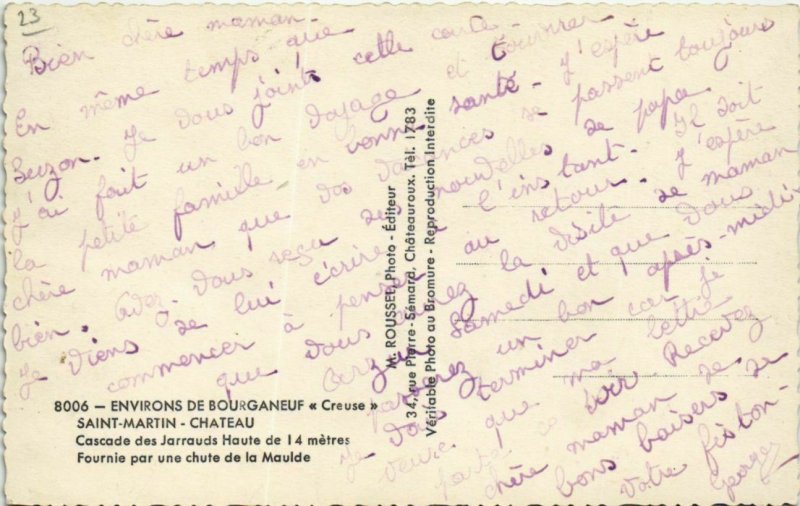 23
Bien chère maman -
En même temps que
Suzon - Je vous joint cette carte
J'ai fait un bon voyage et trouver
la petite famille en bonne santé - J'espère
chère maman que vos vacances se passent toujours
bien. Avez-vous reçu des nouvelles de papa
Je viens de lui écrire à l'instant. Il doit
commencer à penser au retour. J'espère
que vous aurez la visite de maman
samedi et que vous
passerez un bon après-midi
Je vais terminer car je
veux que ma lettre
parte ce soir. Recevez
chère maman de
bons baisers de
votre fiston -
Georges
M. ROUSSEL, Photo - Éditeur
34, rue Pierre-Sémard, Châteauroux. Tél. 1783
Véritable Photo au Bromure - Reproduction Interdite
8006 — ENVIRONS DE BOURGANEUF « Creuse »
SAINT-MARTIN - CHATEAU
Cascade des Jarrauds Haute de 14 mètres
Fournie par une chute de la Maulde